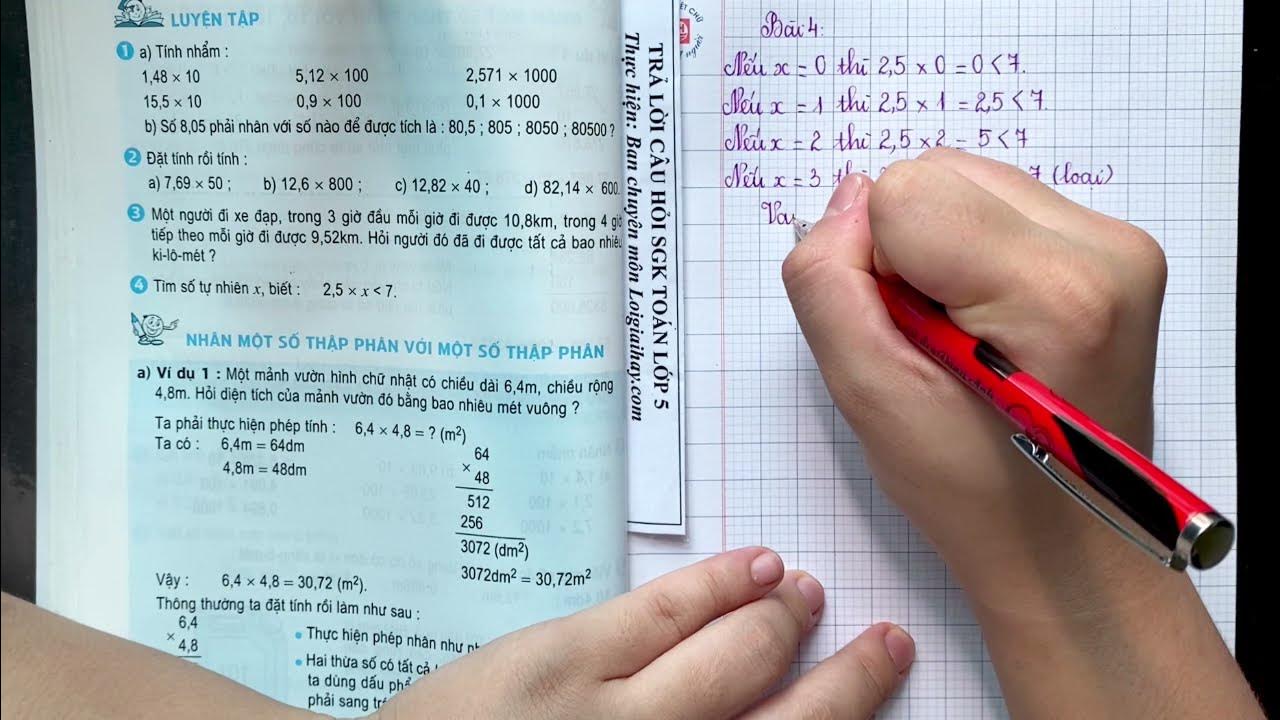 LUYỆN TẬP
1 a) Tính nhẩm :
1,48 × 10 5,12 × 100 2,571 × 1000
15,5 × 10 0,9 × 100 0,1 × 1000
b) Số 8,05 phải nhân với số nào để được tích là : 80,5 ; 805 ; 8050 ; 80500 ?
2 Đặt tính rồi tính :
a) 7,69 × 50 ; b) 12,6 × 800 ; c) 12,82 × 40 ; d) 82,14 × 600.
3 Một người đi xe đạp, trong 3 giờ đầu mỗi giờ đi được 10,8km, trong 4 giờ
tiếp theo mỗi giờ đi được 9,52km. Hỏi người đó đã đi được tất cả bao nhiêu
ki-lô-mét ?
4 Tìm số tự nhiên x, biết : 2,5 × x < 7.
NHÂN MỘT SỐ THẬP PHÂN VỚI MỘT SỐ THẬP PHÂN
a) Ví dụ 1 : Một mảnh vườn hình chữ nhật có chiều dài 6,4m, chiều rộng
4,8m. Hỏi diện tích của mảnh vườn đó bằng bao nhiêu mét vuông ?
Ta phải thực hiện phép tính : 6,4 × 4,8 = ? (m²)
Ta có : 6,4m = 64dm
4,8m = 48dm
64
×
48
512
256
3072 (dm²)
3072dm² = 30,72m²
Vậy : 6,4 × 4,8 = 30,72 (m²).
Thông thường ta đặt tính rồi làm như sau :
6,4
×
4,8
• Thực hiện phép nhân như
• Hai thừa số có tất cả
ta dùng dấu
phải sang
TRẢ LỜI CÂU HỎI SGK TOÁN LỚP 5
Thực hiện: Ban chuyên môn Loigiaihay.com
Bài 4:
Nếu x = 0 thì 2,5 × 0 = 0 < 7.
Nếu x = 1 thì 2,5 × 1 = 2,5 < 7
Nếu x = 2 thì 2,5 × 2 = 5 < 7
Nếu x = 3 7 (loại)